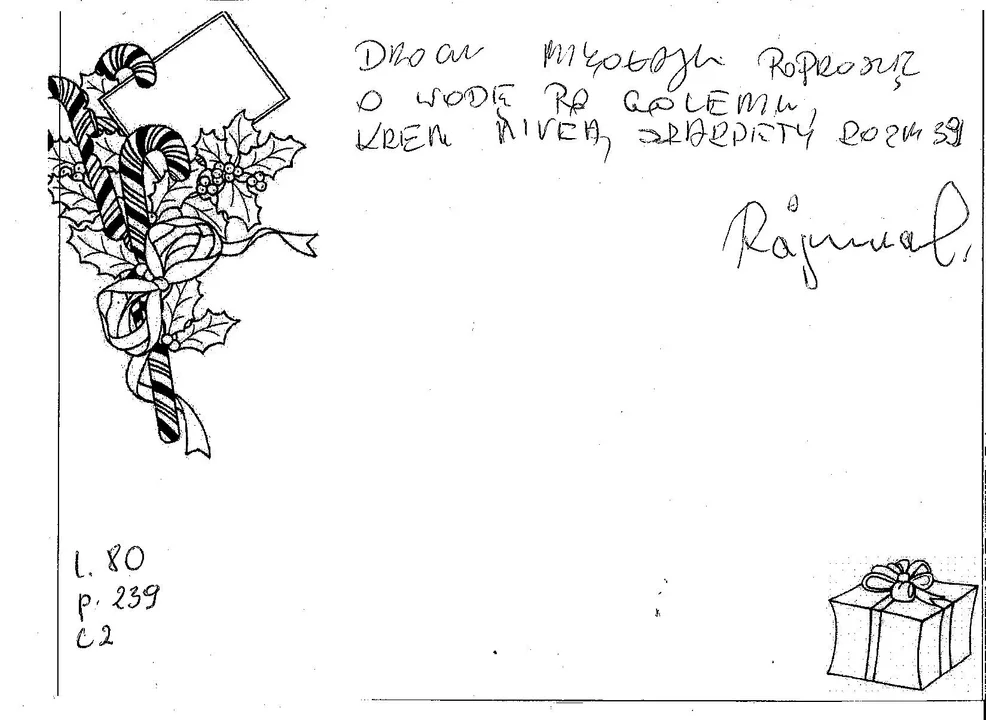 DROGI MIKOŁAJU POPROSZĘ
O WODĘ PO GOLENIU,
KREM NIVEA, SKARPETY ROZM 39
Rajmund.
l. 80
p. 239
C2